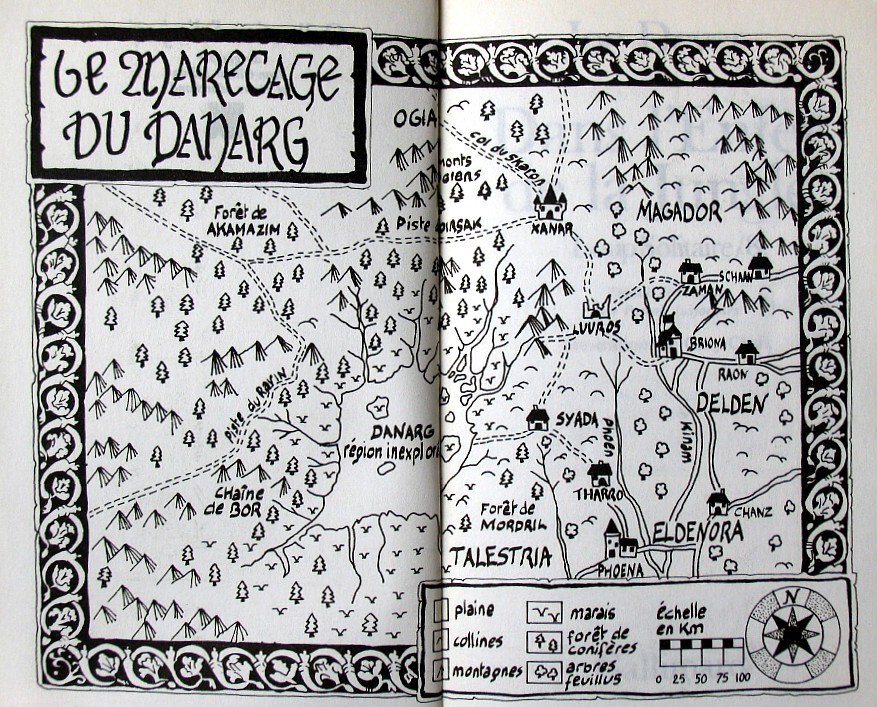 Le MARECAGE
DU DANARG
OGIA
Col du Skaron
monts
Forêt de
AKAMAZIM
Piste
XANAR
MAGADOR
ZAMAN
SCHAAN
LUUROS
BRIONA
RAON
DELDEN
Piste du Ravin
DANARG
région inexplor
SYADA
Phoen
Kinam
THARRO
Chaîne
de BOR
Forêt de
MORDRIL
CHANZ
ELDENORA
TALESTRIA
PHOENA
plaine
collines
montagnes
marais
forêt de
conifères
arbres
feuillus
échelle
en Km
0 25 50 75 100
N